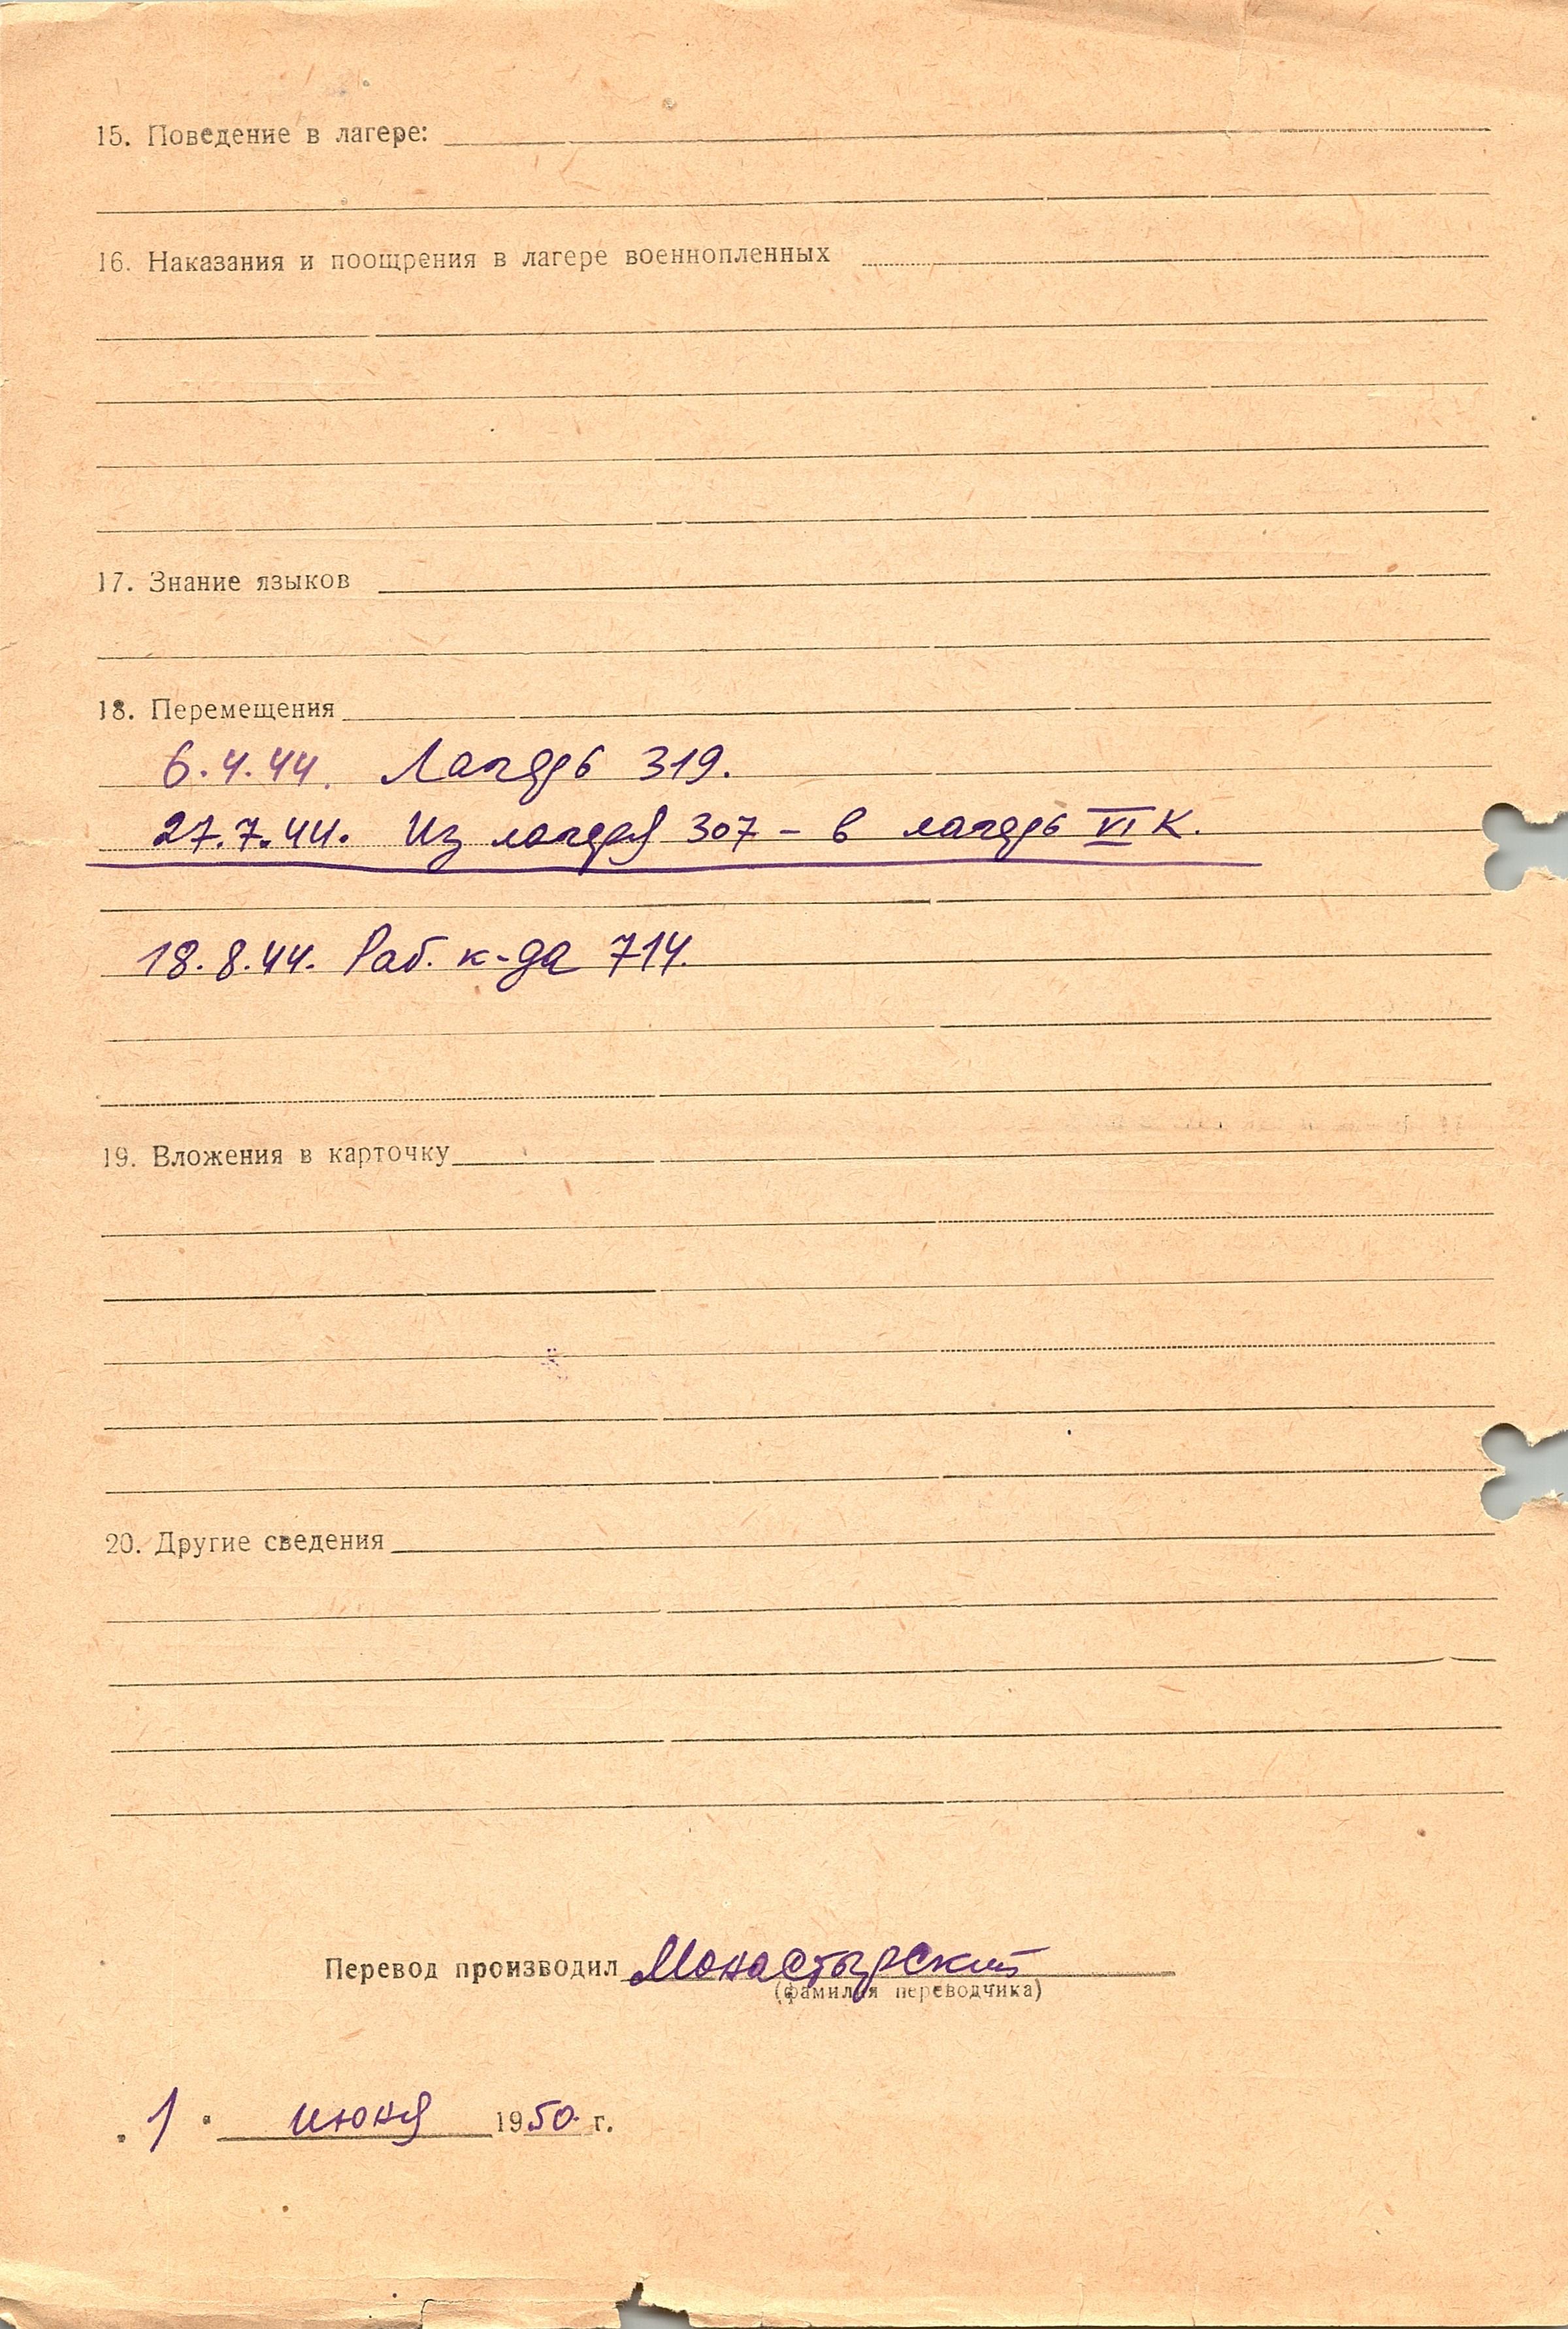 15. Поведение в лагере:
16. Наказания и поощрения в лагере военнопленных
17. Знание языков
18. Перемещения
6.4.44. Лагерь 319.
27.7.44. Из лагеря 307 – в лагерь VI К.
18.8.44. Раб. к-да 714.
19. Вложения в карточку
20. Другие сведения
Перевод производил Монастырский
(фамилия переводчика)
„1" июня 1950 г.